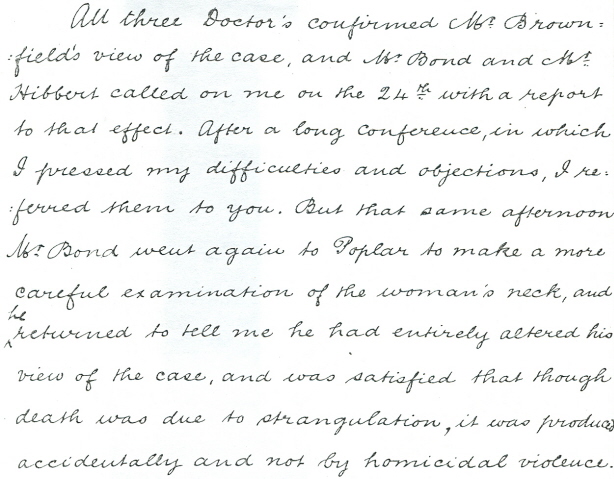 All three Doctor's confirmed Mr. Brown=
:field's view of the case, and Mr. Bond and Mr.
Hibbert called on me on the 24th with a report
to that effect. After a long conference, in which
I pressed my difficulties and objections, I re:
:ferred them to you. But that same afternoon
Mr. Bond went again to Poplar to make a more
careful examination of the woman's neck, and
he
returned to tell me he had entirely altered his
view of the case, and was satisfied that though
death was due to strangulation, it was produced
accidentally and not by homicidal violence.